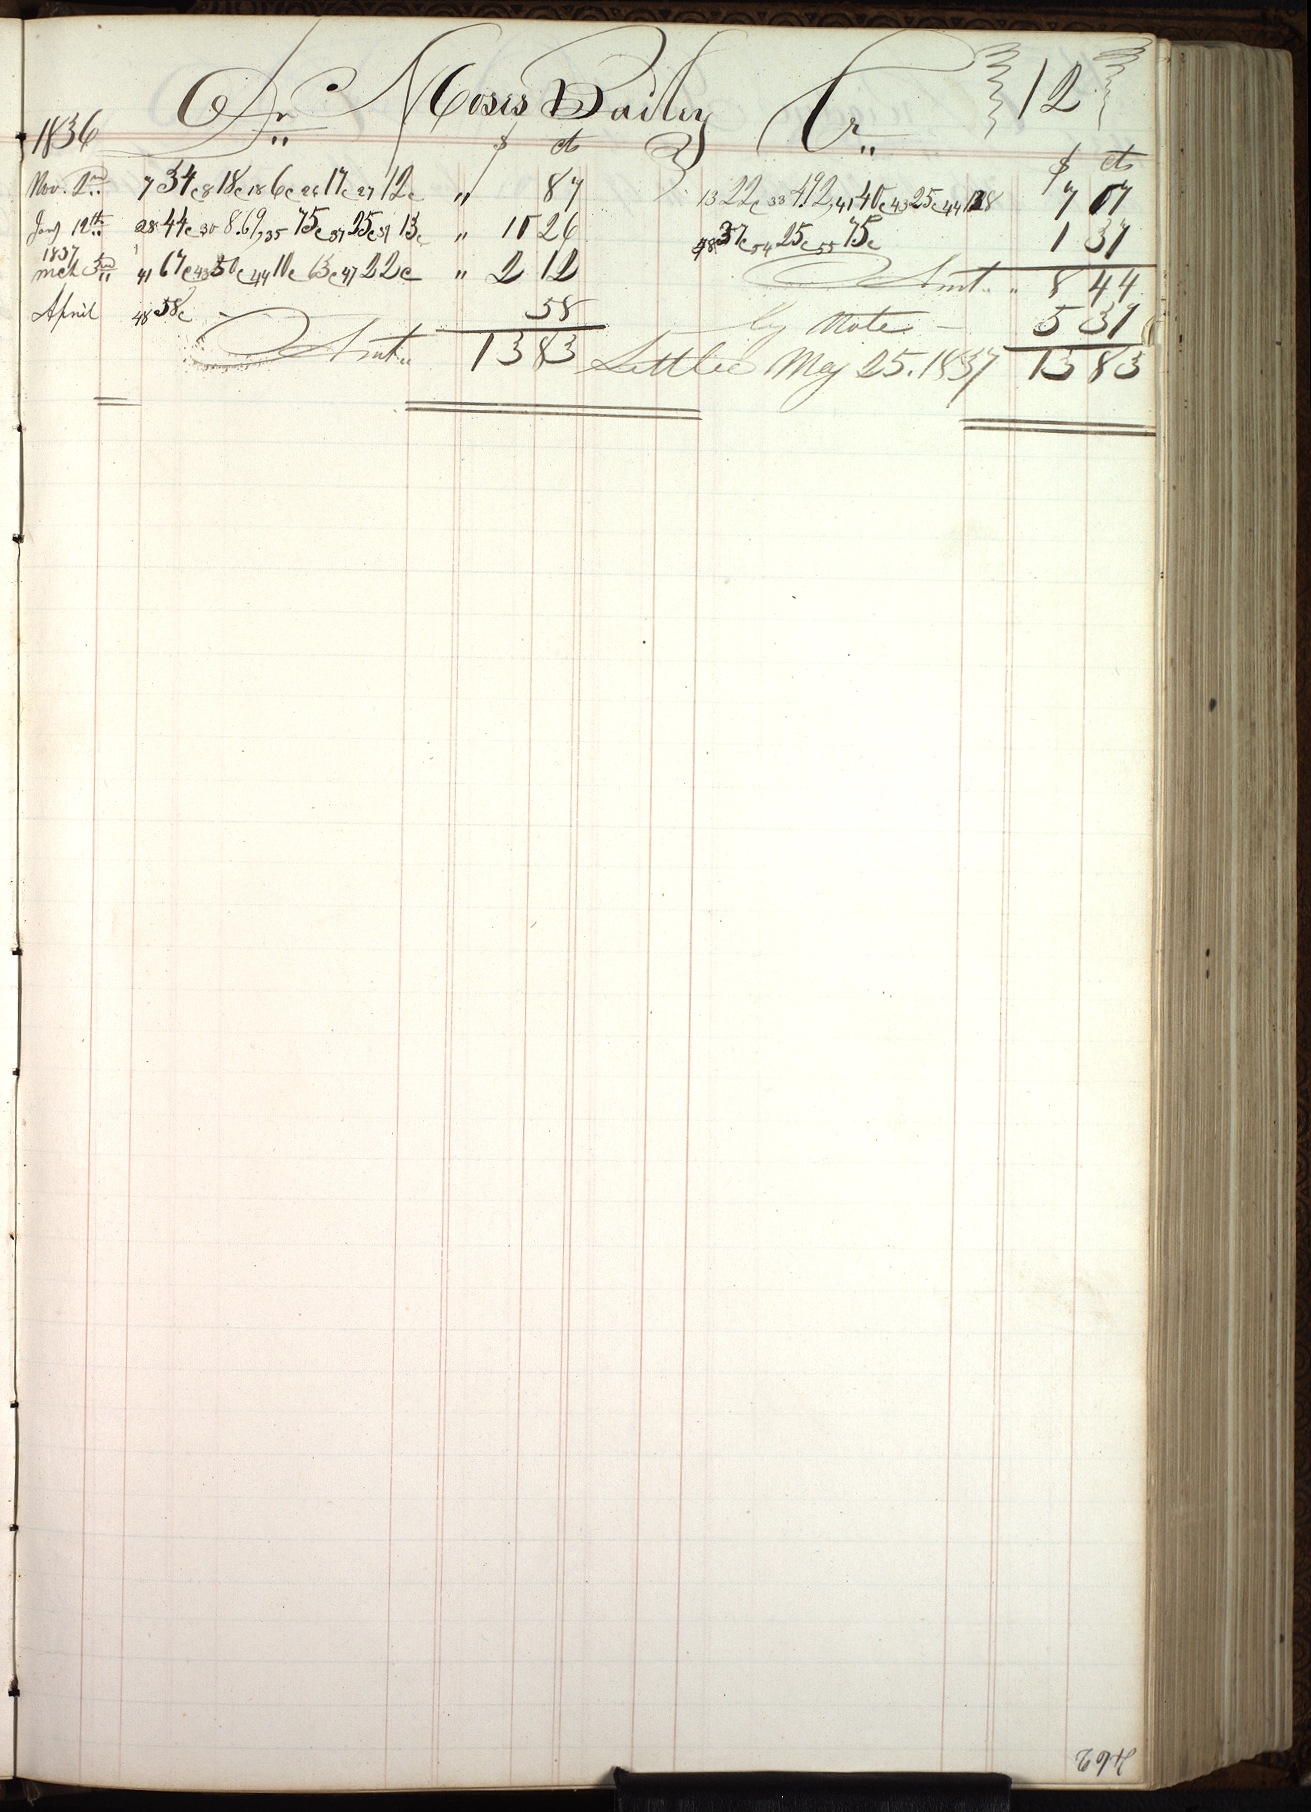 Dr Moses Bailey Cr 12
1836 $ cts $ cts
Nov. 2nd 7 34c 8 18c 18 6c 26 17c 27 12c " 87
13 22c 33 492, 41 40c 43 25c 44 128 7 07
Jany 12th 28 44c 30 8.69, 35 75c 37 25c 39 13c " 10 26
48 37c 54 25c 55 75c 1 37
1837
mch 3rd 41 67c 43 50c 44 10c 63c 47 22c " 2 12
Amt " 8 44
April 48 58c 58
by Note - 5 39
Amt 13 83 Settled May 25. 1837 13 83
462